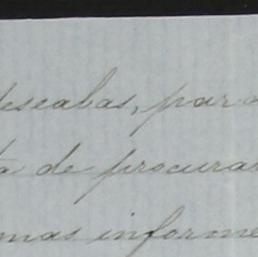 deseabas, para
ta de procurar
mas informe